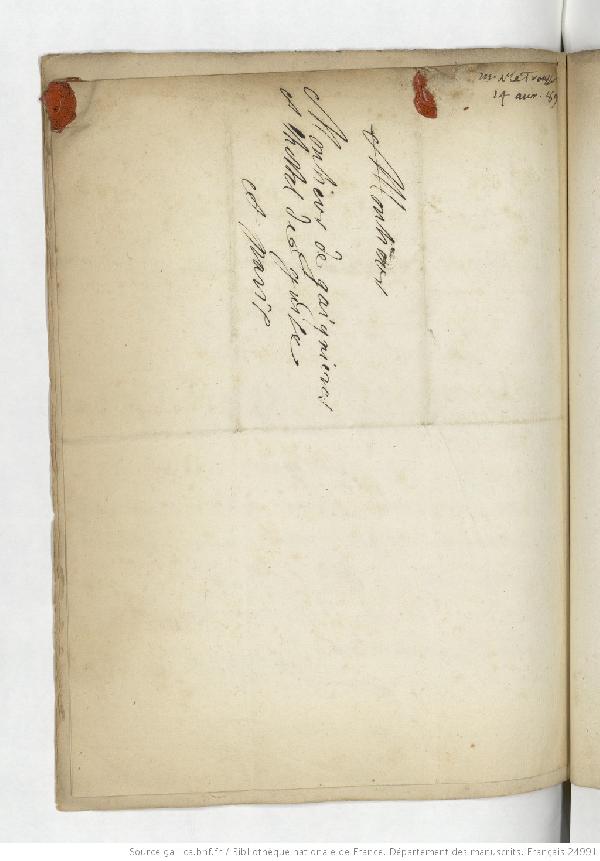 A Monsieur
Monsieur de gaignieres
A lhostel de guise
A Paris
14 avr. 89
Source gallica.bnf.fr / Bibliothèque nationale de France. Département des manuscrits. Français 24991